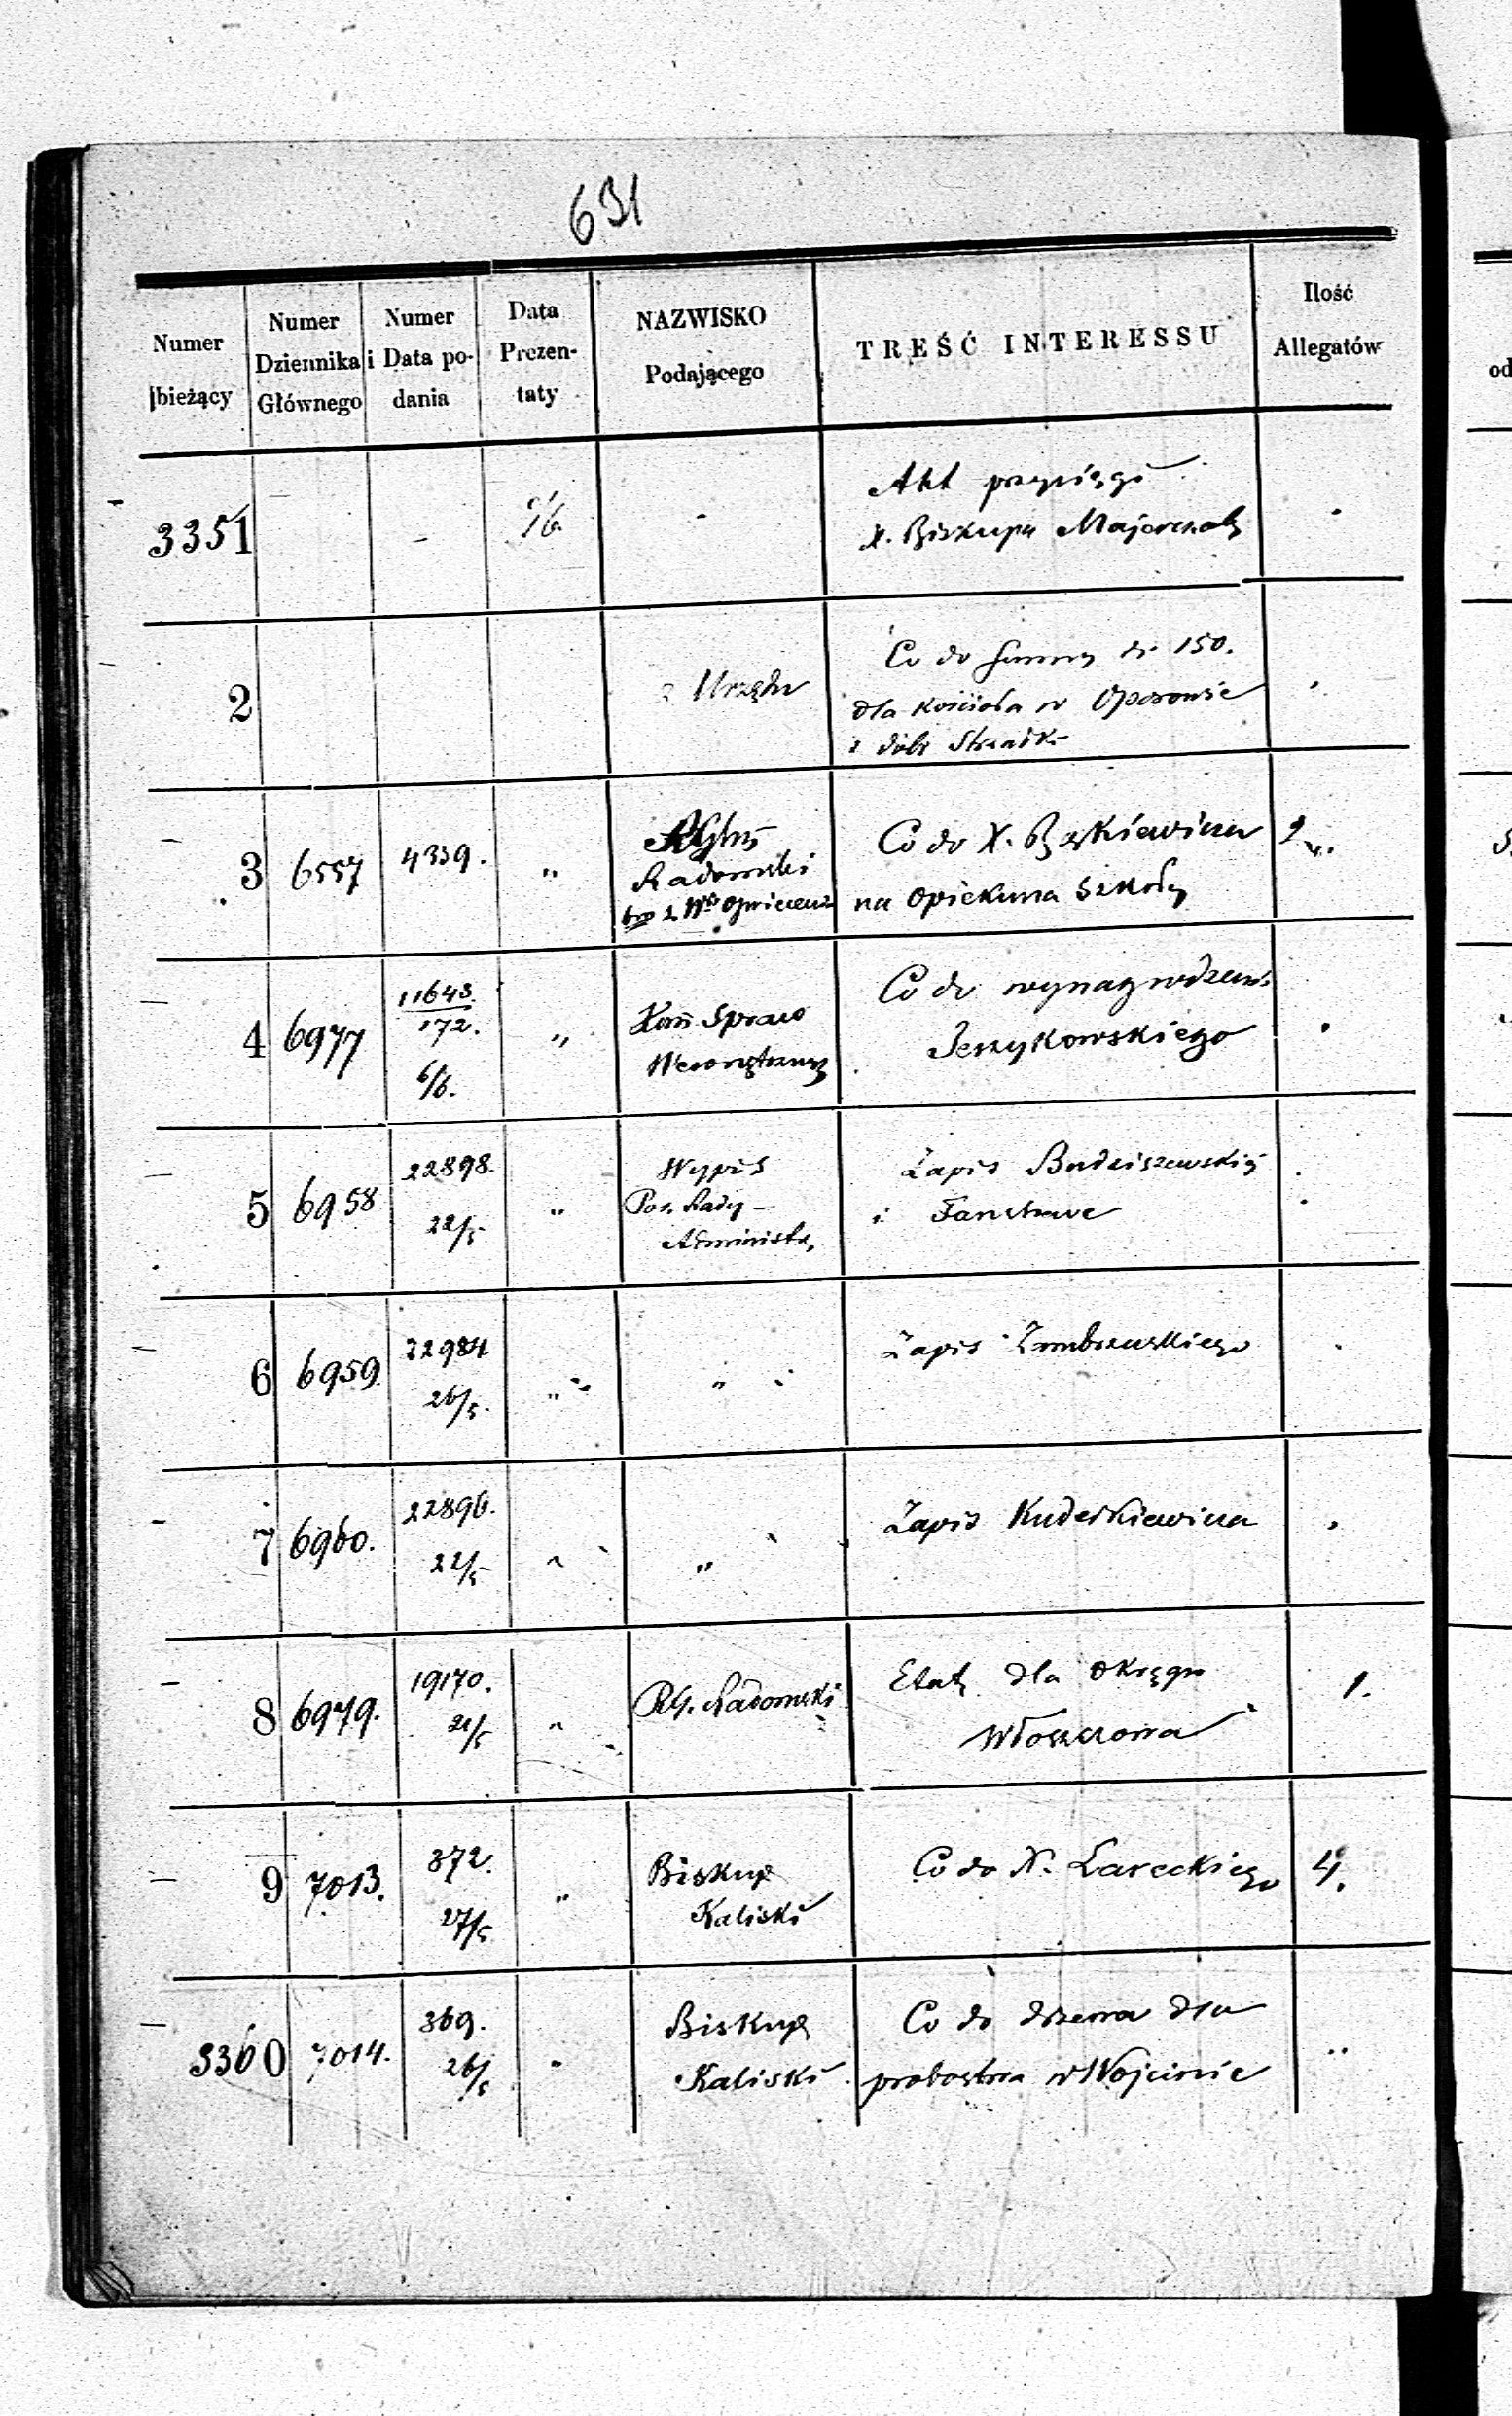 631
Numer bieżący
Numer Dziennika Głównego
Numer i Data podania
Data Prezentaty
NAZWISKO Podającego
TREŚĆ INTERESSU
Ilość Allegatów
3351 - - -
Akt przysięgi
X. Biskupa
2 z Urzędu
Co do Summy 150.
dla kościoła w Oporowie
z dóbr
3 6557 4339. "
Radomski
Co do X.
na opiekuna Szkoły
4 6977 11643/172. 6/6. "
Kom Spraw
Wewnętrzny
Co do
5 6958 22898. 22/5 "
Wypis
Pos. Rady
Administ.
Zapis Budziszewskiej
i
6 6959. 22984 26/5. " "
Zapis
7 6960. 22896. 22/5 " "
Zapis
8 6979. 19170. 21/5 "
RG. Radomski
Etaty dla Okręgu
Włoszczowa
1.
9 7013. 372. 27/5 "
Biskup
Kaliski
Co do X. Lareckiego
4.
3360 7014. 369. 26/5 "
Biskup
Kaliski
Co do drzewa dla
probostwa w Wojcinie